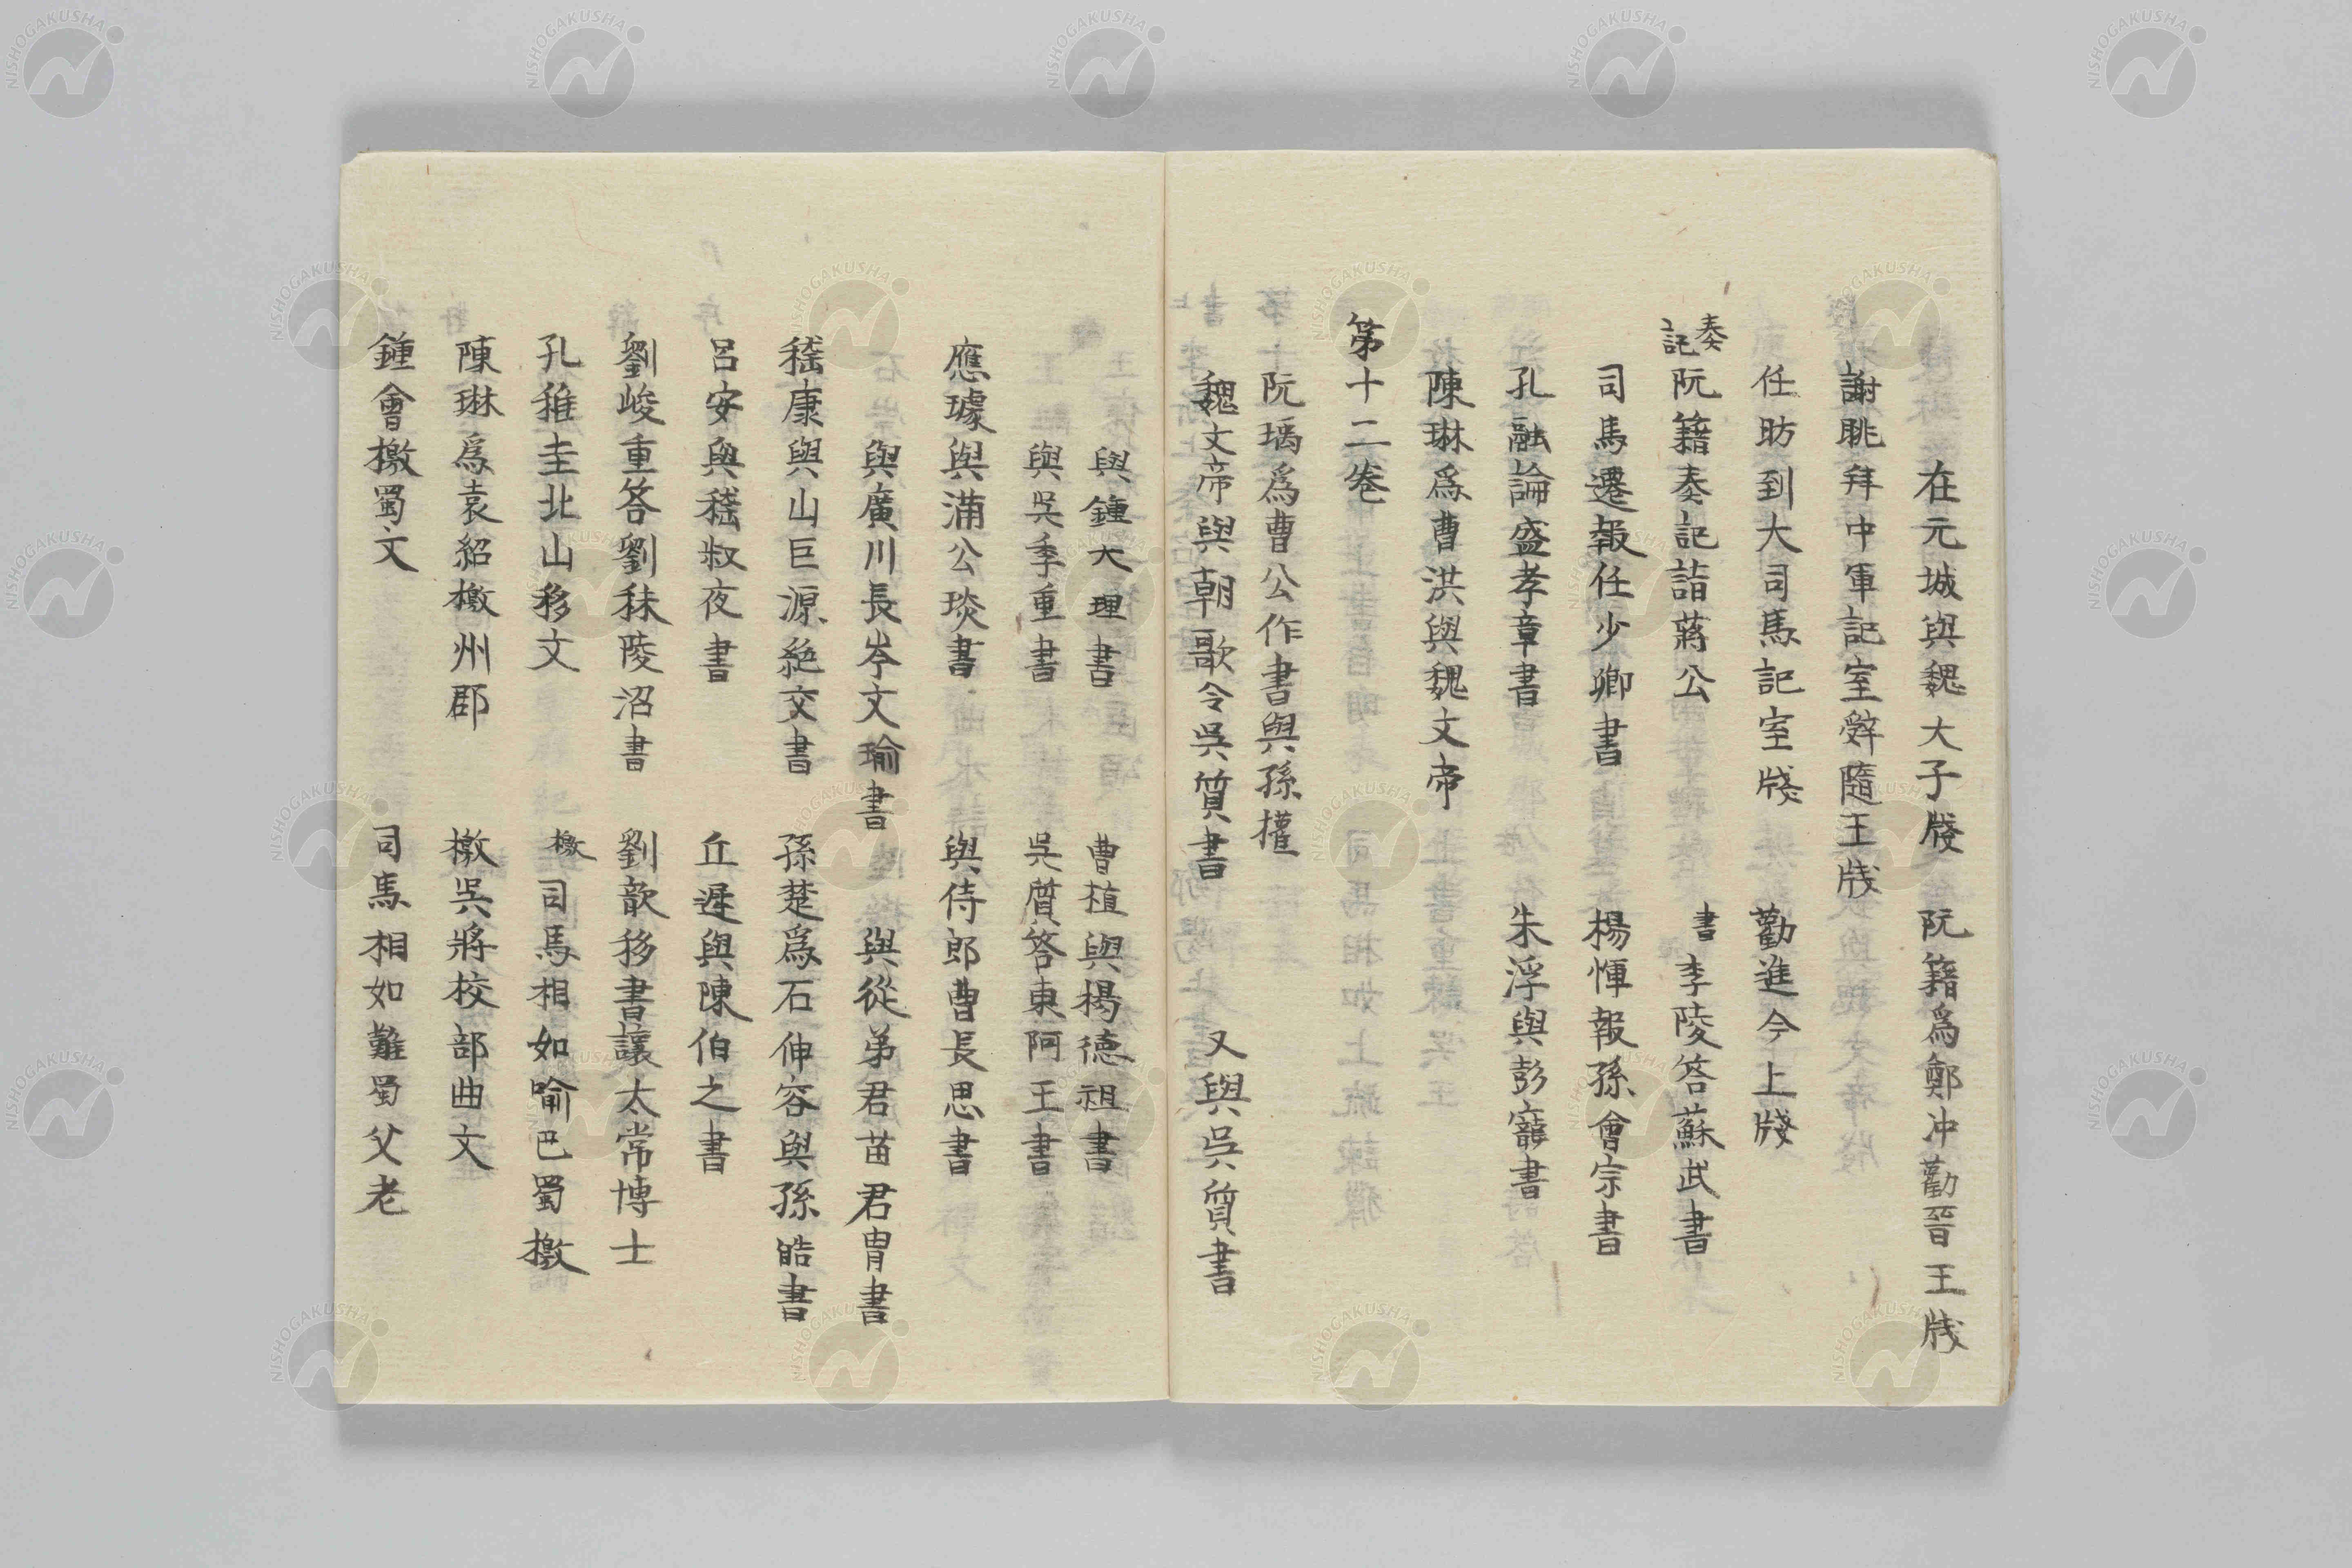 在元城與魏大子牋　阮籍爲鄭冲勸晉王牋
謝朓拜中軍記室辭隨王牋
任昉到大司馬記室牋　勸進今上牋
奏記　阮籍奏記詣蔣公　書　李陵答蘇武書
司馬遷報任少卿書　楊惲報孫會宗書
孔融論盛孝章書　朱浮與彭寵書
陳琳爲曹洪與魏文帝
第十二卷
阮瑀爲曹公作書與孫權
魏文帝與朝歌令吳質書　又與吳質書
與鍾大理書　曹植與楊德祖書
與吳季重書　吳質答東阿王書
應璩與滿公琰書　與侍郎曹長思書
與廣川長岑文瑜書　與從弟君苗君冑書
嵇康與山巨源絶交書　孫楚爲石仲容與孫皓書
呂安與嵇叔夜書　丘遲與陳伯之書
劉峻重答劉秣陵沼書　劉歆移書讓太常博士
孔稚圭北山移文　檄　司馬相如喻巴蜀檄
陳琳爲袁紹檄州郡　檄吳將校部曲文
鍾會檄蜀文　司馬相如難蜀父老
NISHOGAKUSHA